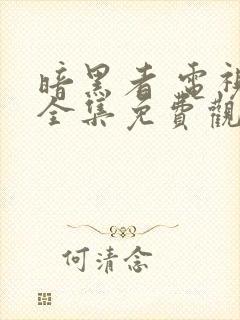 暗黑者 電視
全集免費觀
何清念